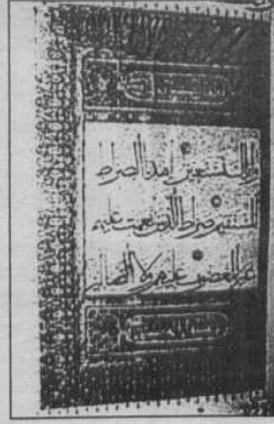 واياك نستعين اهدنا الصراط
المستقيم صراط الذين انعمت عليهم
غير المغضوب عليهم ولا الضالين